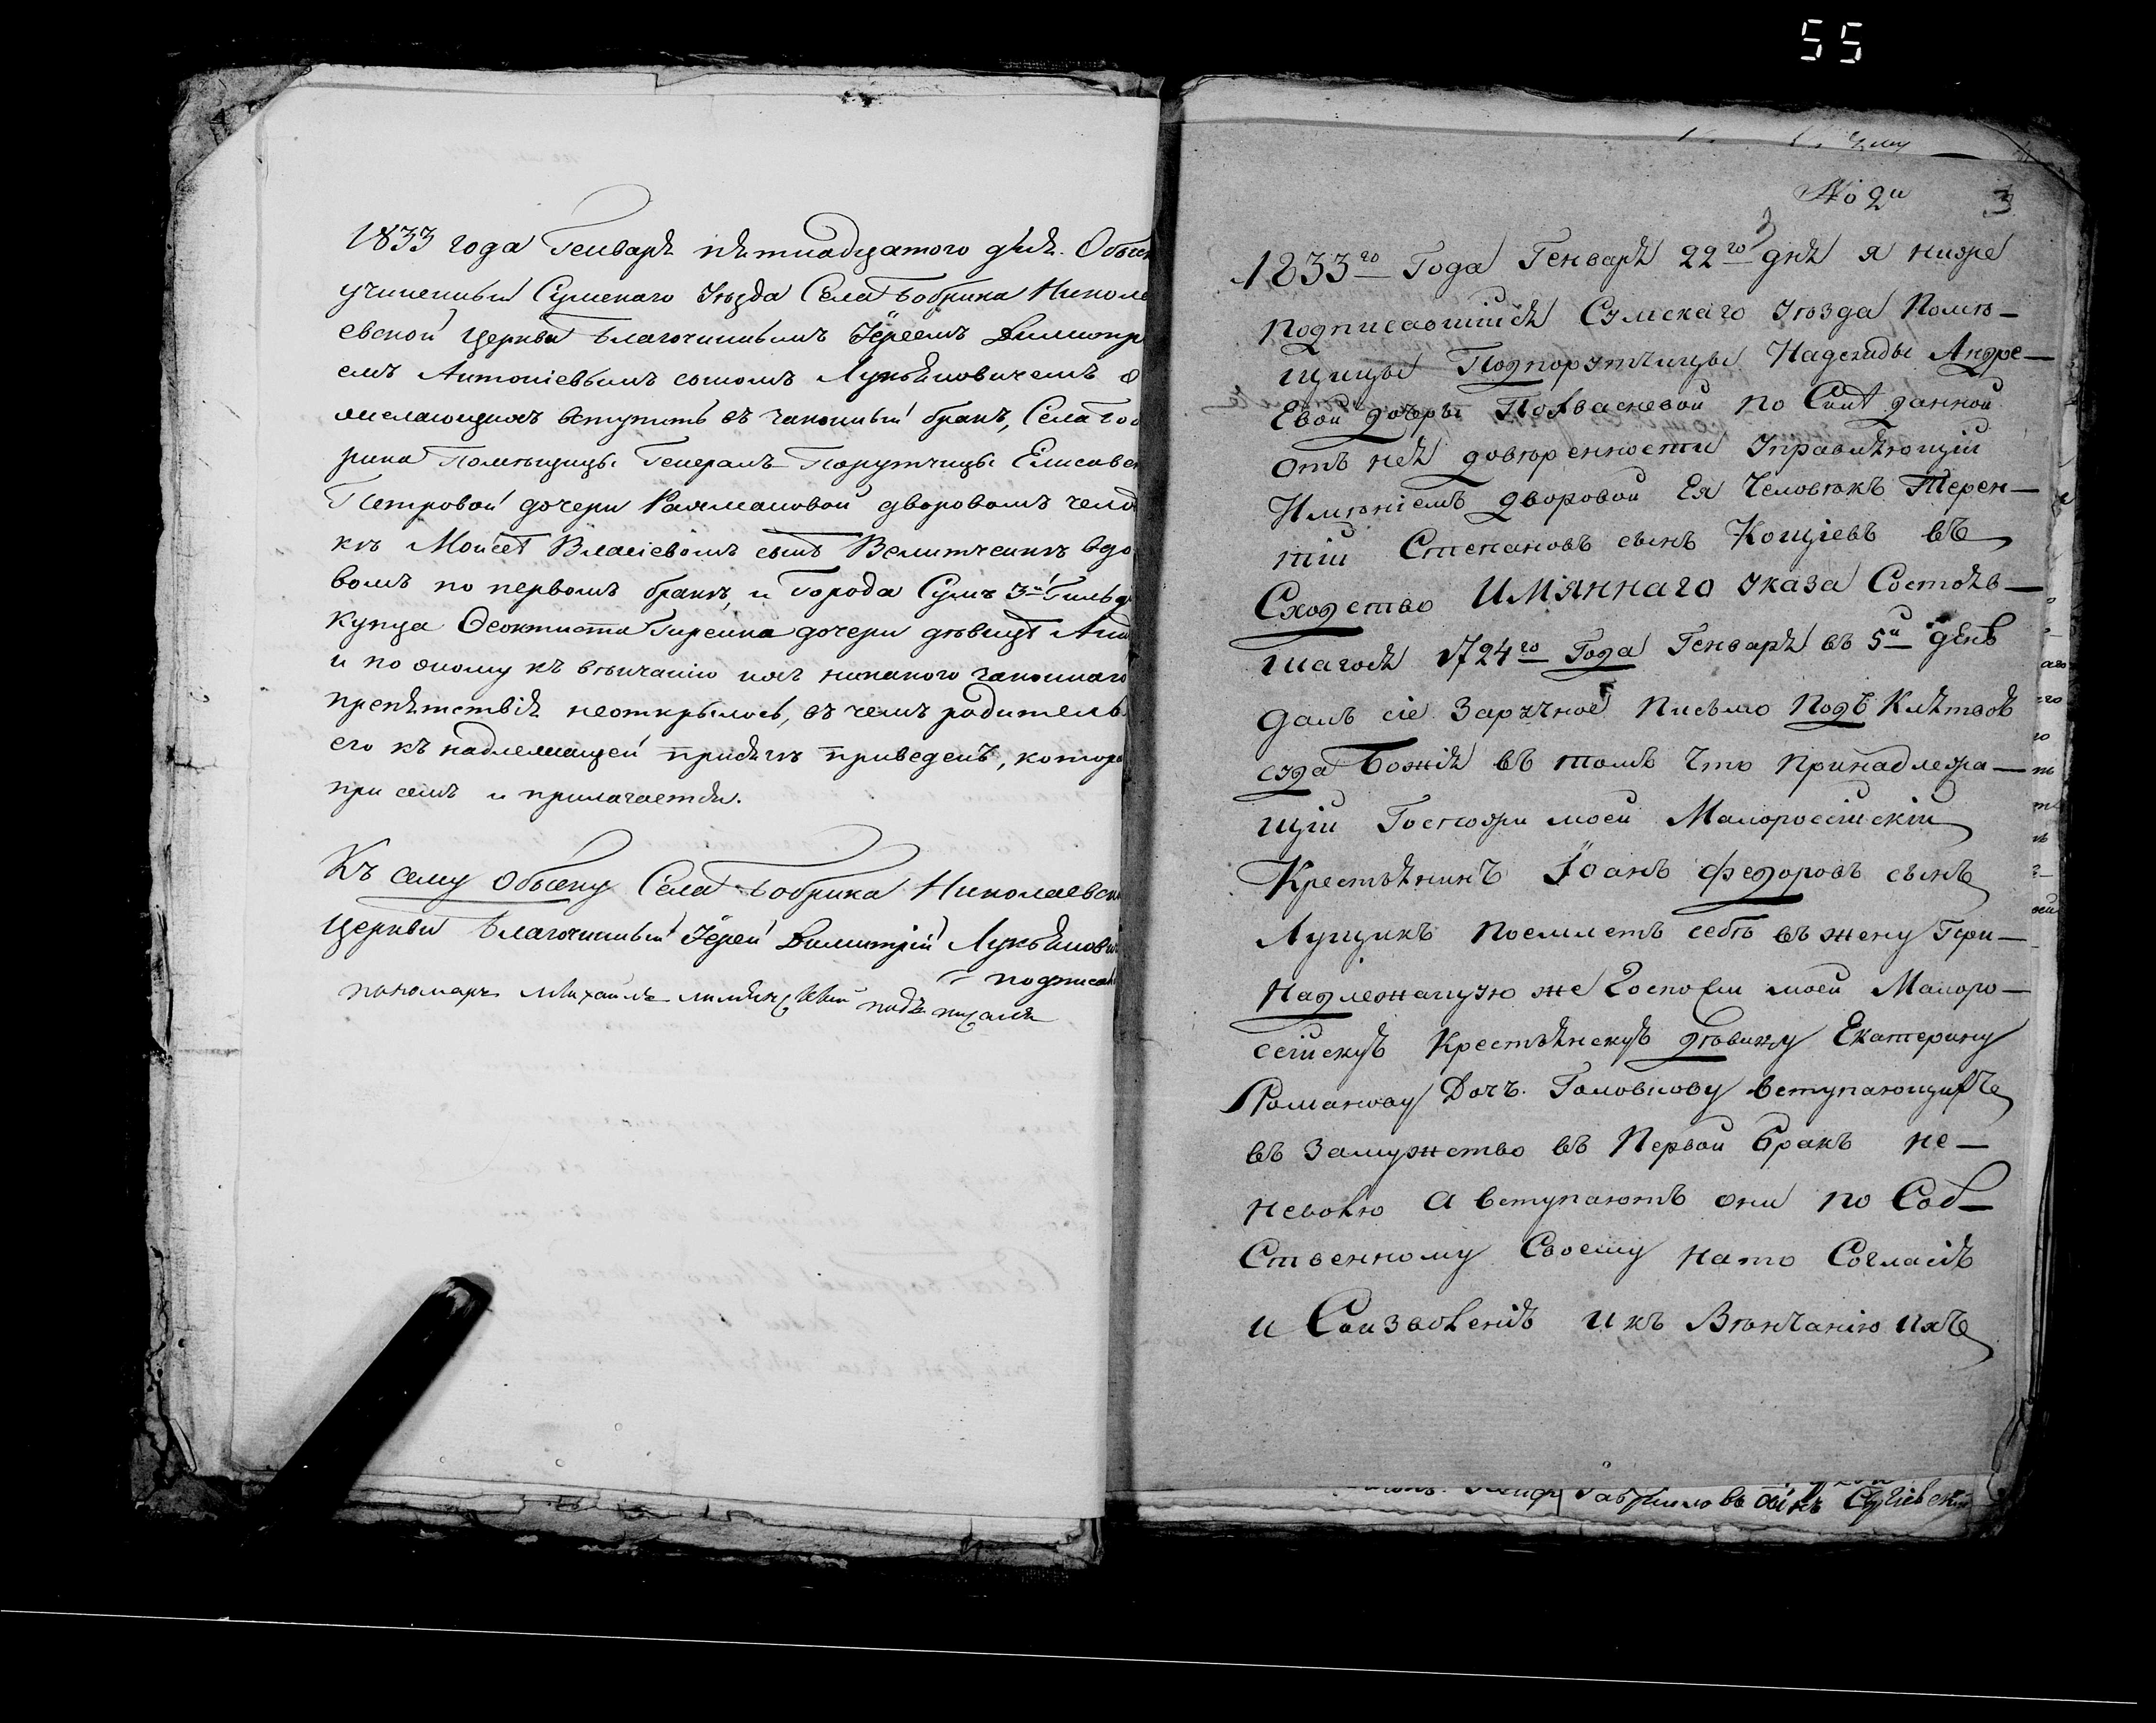 55
1833 года Генваря пятнадцатого дня. Обыск
учиненный Сумскаго Уезда Села Бобрика Никола
евской Церкви Благочиннымъ Iереемъ Димитрі
емъ Антоніевымъ сыномъ Лукьяновичемъ о
желающихъ вступить въ законный бракъ, Села Боб
рика Помѣщицы Генералъ Порутчицы Елисаве
Петровой дочери Рахмановой дворовомъ чело
кѣ Моисеѣ Власіевомъ сынѣ вдо
вомъ по первомъ бракѣ, и города Сумъ 3й Гильд
Купца Ѳеоктиста дочери дѣвицѣ
и по оному къ вѣнчанію ихъ никакого законнаго
препятствія неоткрылось, въ чемъ родитель
его къ надлежащей присягѣ приведенъ, котора
при семъ и прилагается.
Къ сему обыску Села Бобрика Николаевск
Церкви Благочинный Iерей Димитрій Лукьянович
подписал
пономарь Михаилъ подъписался
№ 2й 3
1833го Года Генваря 22го дня я ниже
подписавшійся Сумскаго уезда Помѣ—
щицы Подпорутчицы Надежды Андре—
Евой дочеры по Силѣ данной
отъ нея довѣренности Управляющій
Имѣніемъ дворовой Ея Человѣкъ Терен—
тій Степановъ сынъ Кощіевъ въ
Сходство Имяннаго указа Состояв—
шагося 1724го Года Генваря въ 5й день
далъ сіе Заручное Письмо Подъ Клятвою
суда Божія въ томъ что принадлежа—
щій Госпожи моей Малоросійскій
Крестьянинъ Iоанъ Федоровъ сынъ
Лущикъ поемлетъ себѣ въ жену При—
Надлежащую же Госпожи моей Малоро—
сійскую Крестьянскую дѣвицу Екатерину
Романову Дочъ. Головкову вступающихъ
въ Замужство въ Первой бракъ не—
неволю а вступаютъ они по Соб—
Ственному Своему на то Согласію
и Соизволенію и къ Вѣнчанію ихъ